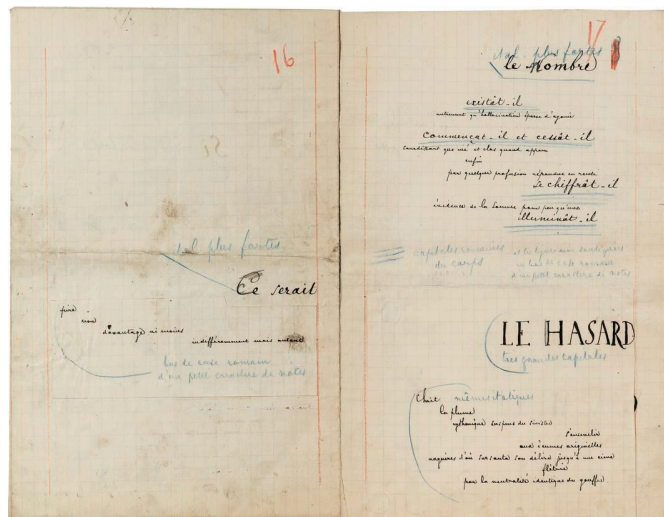 16
ital. plus fortes
Ce serait
pire
non
davantage ni moins
indifféremment mais autant
bas de casse romain
d'un petit caractère de notes
17
ital. plus fortes
le Nombre
existât-il
autrement qu'hallucination éparse d'agonie
commençât-il et cessât-il
sourdant que nié et clos quand apparu
enfin
par quelque profusion répandue en rareté
se chiffrât-il
évidence de la somme pour peu qu'une
illuminât-il
capitales romaines
du corps
et les lignes non soulignées
en bas de casse romain
d'un petit caractère de notes
LE HASARD
très grandes capitales
Choit mêmes italiques
la plume
rythmique suspens du sinistre
s'ensevelir
aux écumes originelles
naguères d'où sursauta son délire jusqu'à une cime
flétrie
par la neutralité identique du gouffre